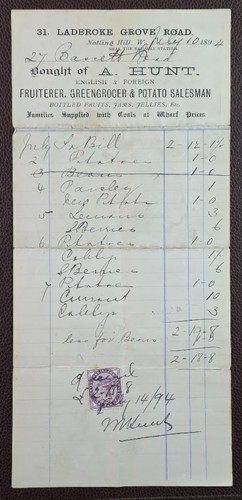 31. LADBROKE GROVE ROAD,
Notting Hill, W. July 10 1894
NEAR THE RAILWAY STATION
27 Bassett Road
Bought of A. HUNT,
ENGLISH & FOREIGN
FRUITERER, GREENGROCER & POTATO SALESMAN
BOTTLED FRUITS, JAMS, JELLIES, &c.
Families Supplied with Coals at Wharf Prices
July To Bill 2-12-1½
2 Potatoes 1-0
3 Beans 1-0
4 Parsley 1
New Potatoes 1-0
5 Lemons 3
S Berries 6
6 Potatoes 1-0
S Berries 6
7 Potatoes 1-0
Currant 10
3
2-19-8
less for Beans
2-18-8
July 14/94
Hunt